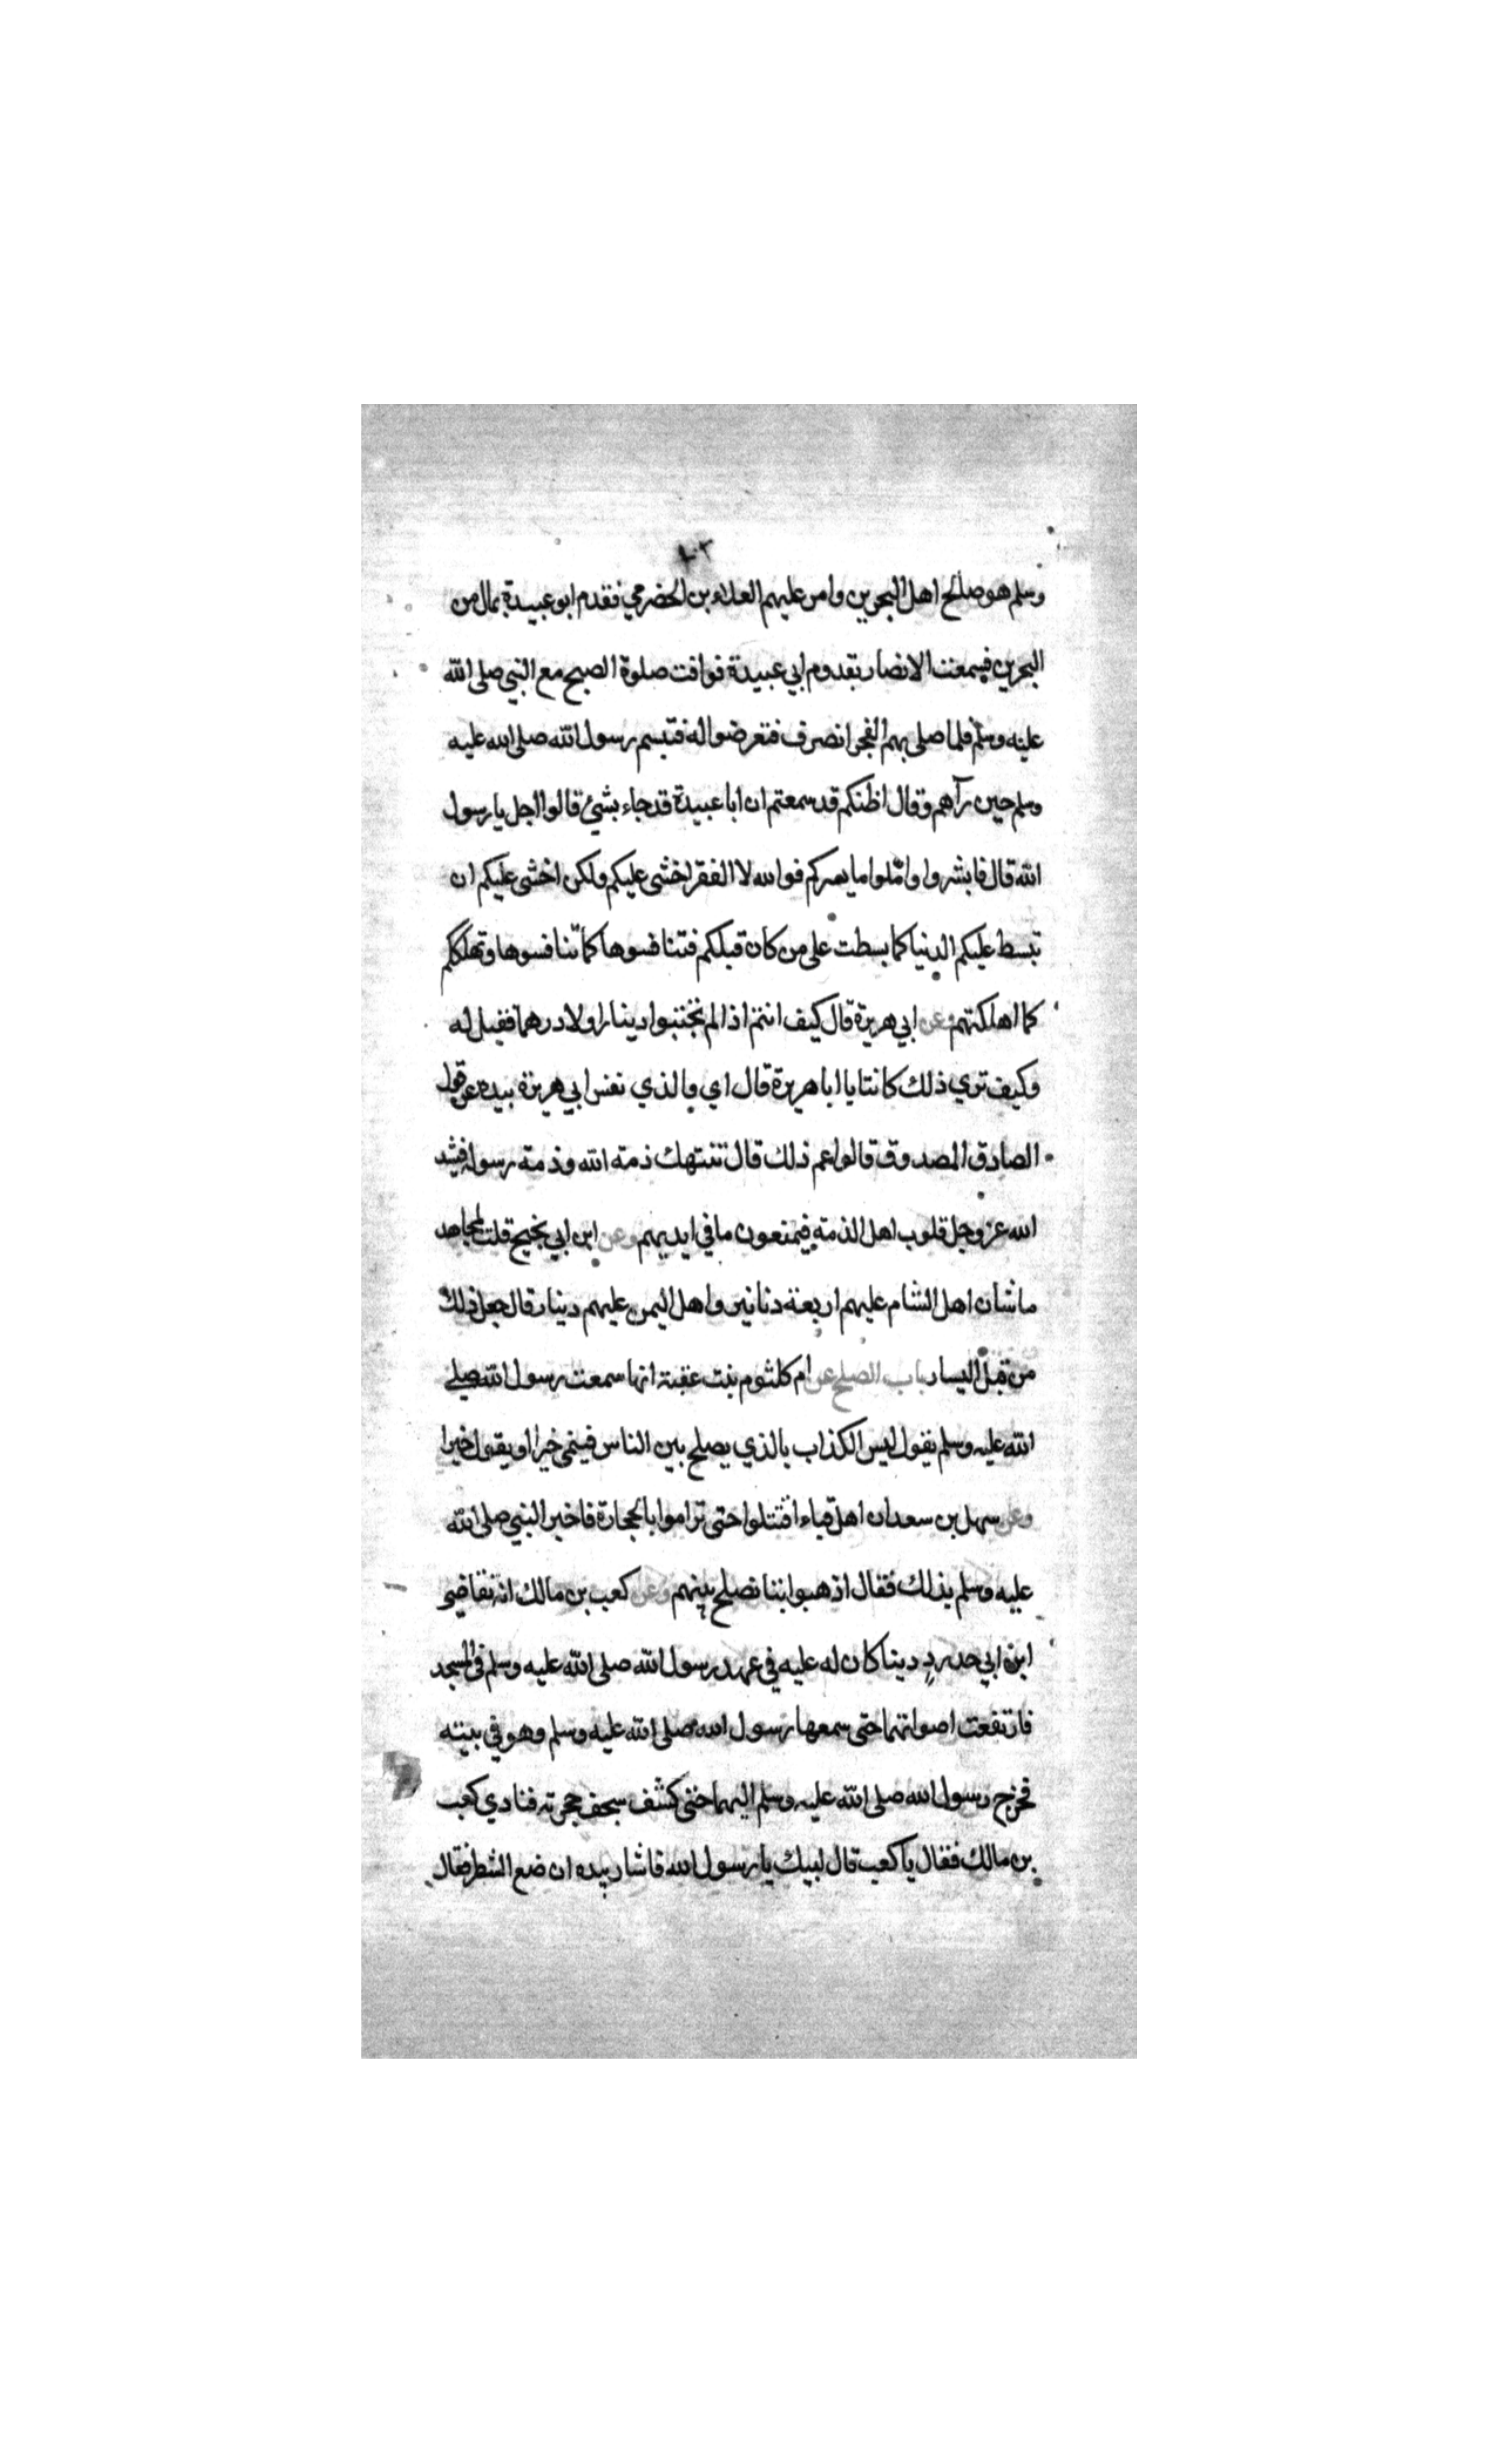 ٢٠٣
وسلم هو صالح اهل البحرين وامر عليهم العلاء بن الحضرمي فقدم ابو عبيدة بمال من
البحرين فسمعت الانصار بقدوم ابي عبيدة فوافت صلوة الصبح مع النبي صلى الله
عليه وسلم فلما صلى بهم الفجر انصرف فتعرضوا له فتبسم رسول الله صلى الله عليه
وسلم حين رآهم وقال اظنكم قد سمعتم ان ابا عبيدة قد جاء بشئ قالوا اجل يا رسول
الله قال فابشروا وامّلوا ما يسركم فوالله لا الفقر اخشى عليكم ولكن اخشى عليكم ان
تبسط عليكم الدنيا كما بسطت على من كان قبلكم فتنافسوها كما تنافسوها وتهلككم
كما اهلكتهم وعن ابي هريرة قال كيف انتم اذا لم تجتبوا دينارا ولا درهما فقيل له
وكيف تري ذلك كائنا يا ابا هريرة قال اي والذي نفس ابي هريرة بيده عن قول
الصادق المصدوق قالوا عم ذلك قال تنتهك ذمة الله وذمة رسوله فيشد
الله عز وجل قلوب اهل الذمة فيمنعون ما في ايديهم وعن ابن ابي نجيح قلت لمجاهد
ما شان اهل الشام عليهم اربعة دنانير واهل اليمن عليهم دينار قال جعل ذلك
من قبل اليسار باب الصلح عن ام كلثوم بنت عقبة انها سمعت رسول الله صلى
الله عليه وسلم يقول ليس الكذاب بالذي يصلح بين الناس فينمي خيرا او يقول خيرا
وعن سهل بن سعد ان اهل قباء اقتتلوا حتى تراموا بالحجارة فاخبر النبي صلى الله
عليه وسلم بذلك فقال اذهبوا بنا نصلح بينهم وعن كعب بن مالك انه تقاضى
ابن ابي حدرد دينا كان له عليه في عهد رسول الله صلى الله عليه وسلم في المسجد
فارتفعت اصواتهما حتى سمعها رسول الله صلى الله عليه وسلم وهو في بيته
فخرج رسول الله صلى الله عليه وسلم اليهما حتى كشف سجف حجرته فنادي كعب
بن مالك فقال يا كعب قال لبيك يا رسول الله فاشار بيده ان ضع الشطر فقال